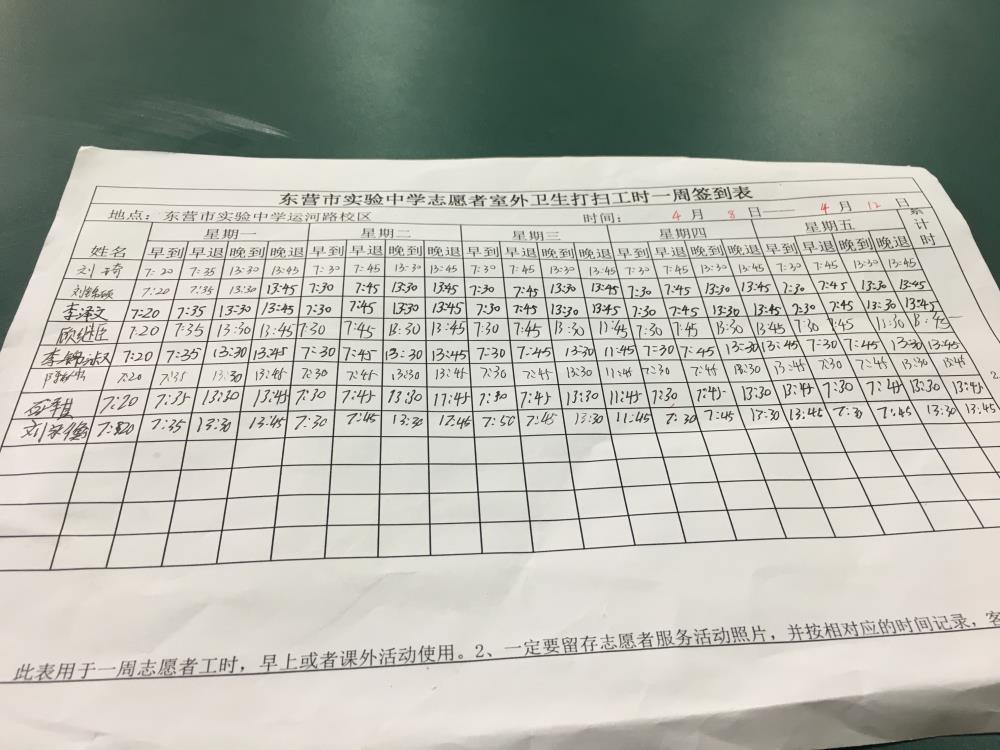 东营市实验中学志愿者室外卫生打扫工时一周签到表
地点：东营市实验中学运河路校区 时间： 4 月 8 日—— 4 月 12 日 累计时
姓名 星期一 星期二 星期三 星期四 星期五
早到 早退 晚到 晚退 早到 早退 晚到 晚退 早到 早退 晚到 晚退 早到 早退 晚到 晚退 早到 早退 晚到 晚退
刘 7:20 7:35 13:30 13:45 7:30 7:45 13:30 13:45 7:30 7:45 13:30 13:45 7:30 7:45 13:30 13:45 7:30 7:45 13:30 13:45
刘 7:20 7:35 13:30 13:45 7:30 7:45 13:30 13:45 7:30 7:45 13:30 13:45 7:30 7:45 13:30 13:45 7:30 7:45 13:30 13:45
李泽文 7:20 7:35 13:30 13:45 7:30 7:45 13:30 13:45 7:30 7:45 13:30 13:45 7:30 7:45 13:30 13:45 7:30 7:45 13:30 13:45
顾继臣 7:20 7:35 13:30 13:45 7:30 7:45 13:30 13:45 7:30 7:45 13:30 11:45 7:30 7:45 13:30 13:45 7:30 7:45 11:30 13:45
李 7:20 7:35 13:30 13:45 7:30 7:45 13:30 13:45 7:30 7:45 13:30 11:45 7:30 7:45 13:30 13:45 7:30 7:45 13:30 13:45
7:20 7:35 13:30 13:45 7:30 7:45 13:30 13:45 7:30 7:45 13:30 11:45 7:30 7:45 13:30 13:45 7:30 7:45 13:30 13:45
7:20 7:35 13:30 13:45 7:30 7:45 13:30 17:45 7:30 7:45 13:30 11:45 7:30 7:45 13:30 13:45 7:30 7:45 13:30 13:45
刘 7:20 7:35 13:30 13:45 7:30 7:45 13:30 17:45 7:50 7:45 13:30 11:45 7:30 7:45 13:30 13:45 7:30 7:45 13:30 13:45
此表用于一周志愿者工时，早上或者课外活动使用。2、一定要留存志愿者服务活动照片，并按相对应的时间记录，客